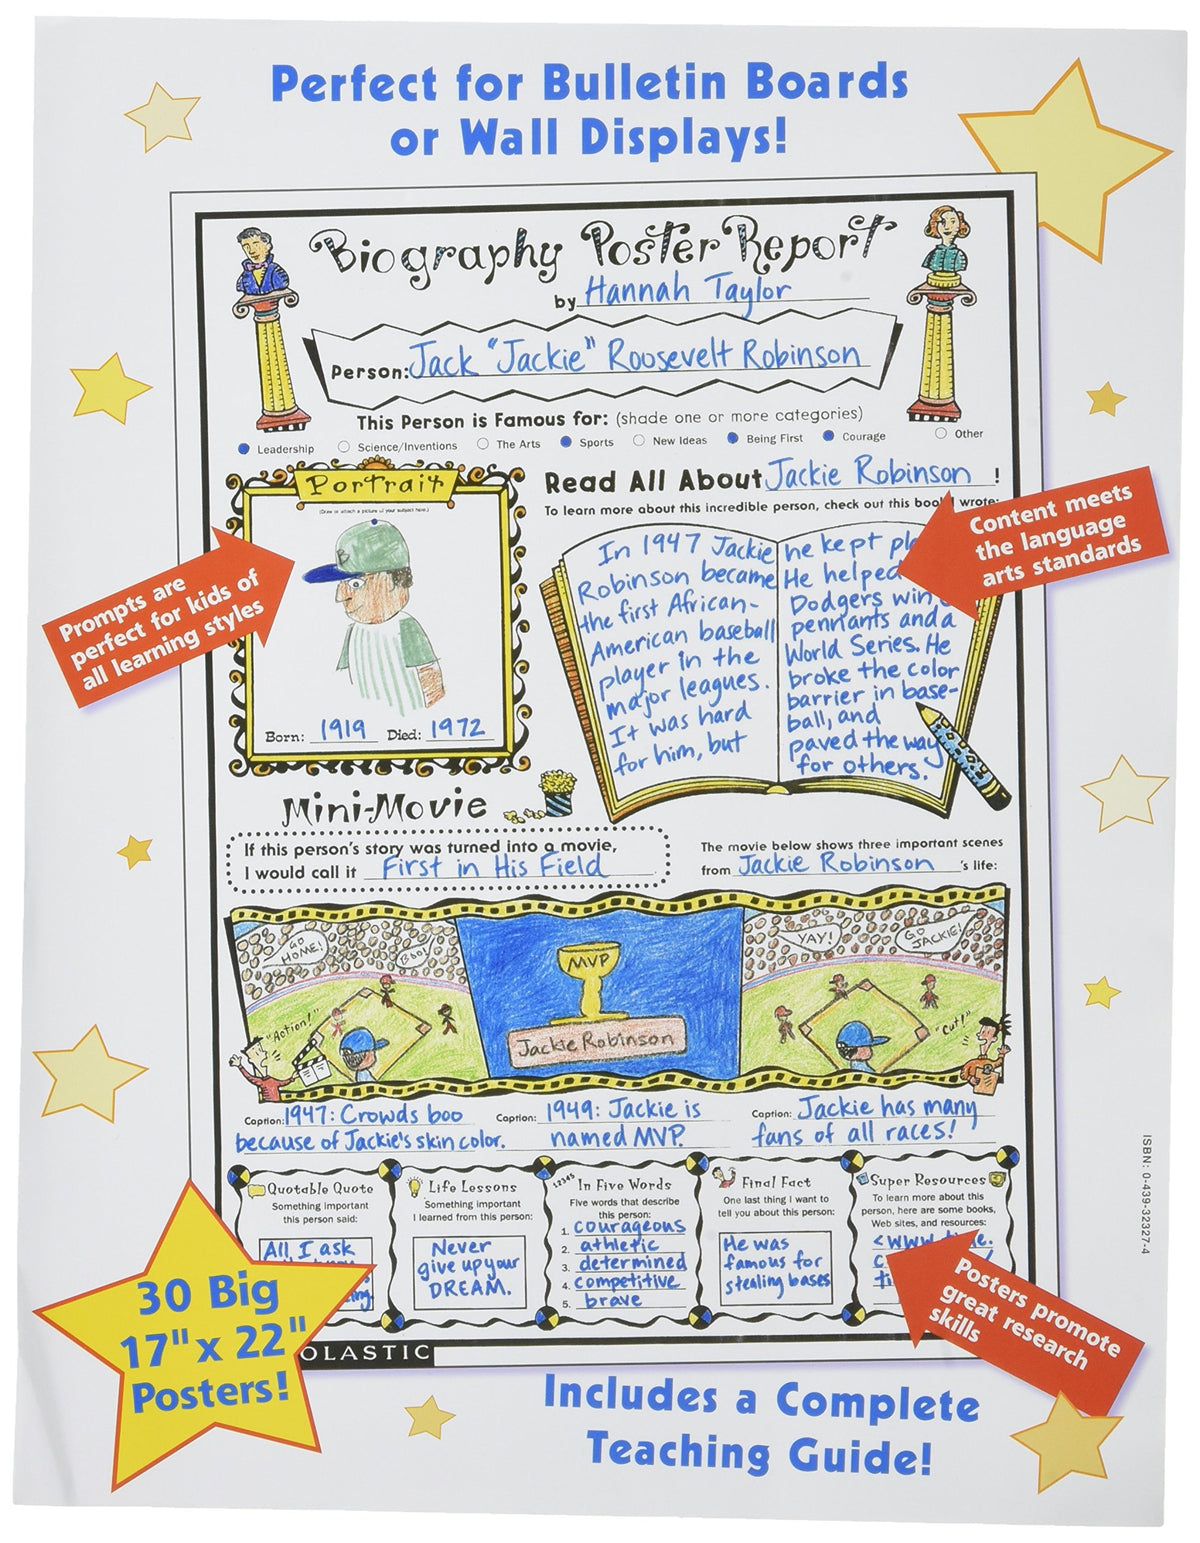 Perfect for Bulletin Boards
or Wall Displays!
Biography Poster Report
by Hannah Taylor
Person: Jack "Jackie" Roosevelt Robinson
This Person is Famous for: (shade one or more categories)
Leadership Science/Inventions The Arts Sports New Ideas Being First Courage Other
Portrait
(Draw or attach a picture of your subject here.)
Born: 1919 Died: 1972
Prompts are
perfect for kids of
all learning styles
Read All About Jackie Robinson !
To learn more about this incredible person, check out this book I wrote:
In 1947 Jackie
Robinson became
the first African-
American baseball
player in the
major leagues.
It was hard
for him, but
he kept
He helped
Dodgers win
pennants and a
World Series. He
broke the color
barrier in base-
ball, and
paved the way
for others.
Content meets
the language
arts standards
Mini-Movie
If this person's story was turned into a movie,
I would call it First in His Field
The movie below shows three important scenes
from Jackie Robinson 's life:
GO
HOME!
BOO!
"Action!"
MVP
Jackie Robinson
YAY!
GO
JACKIE!
"Cut!"
Caption: 1947: Crowds boo
because of Jackie's skin color.
Caption: 1949: Jackie is
named MVP.
Caption: Jackie has many
fans of all races!
Quotable Quote
Something important
this person said:
All I ask
Life Lessons
Something important
I learned from this person:
Never
give up your
DREAM.
12345
In Five Words
Five words that describe
this person:
1. courageous
2. athletic
3. determined
4. competitive
5. brave
Final Fact
One last thing I want to
tell you about this person:
He was
famous for
stealing bases
Super Resources
To learn more about this
person, here are some books,
Web sites, and resources:
Posters promote
great research
skills
30 Big
17" x 22"
Posters!
OLASTIC
Includes a Complete
Teaching Guide!
ISBN: 0-439-32327-4